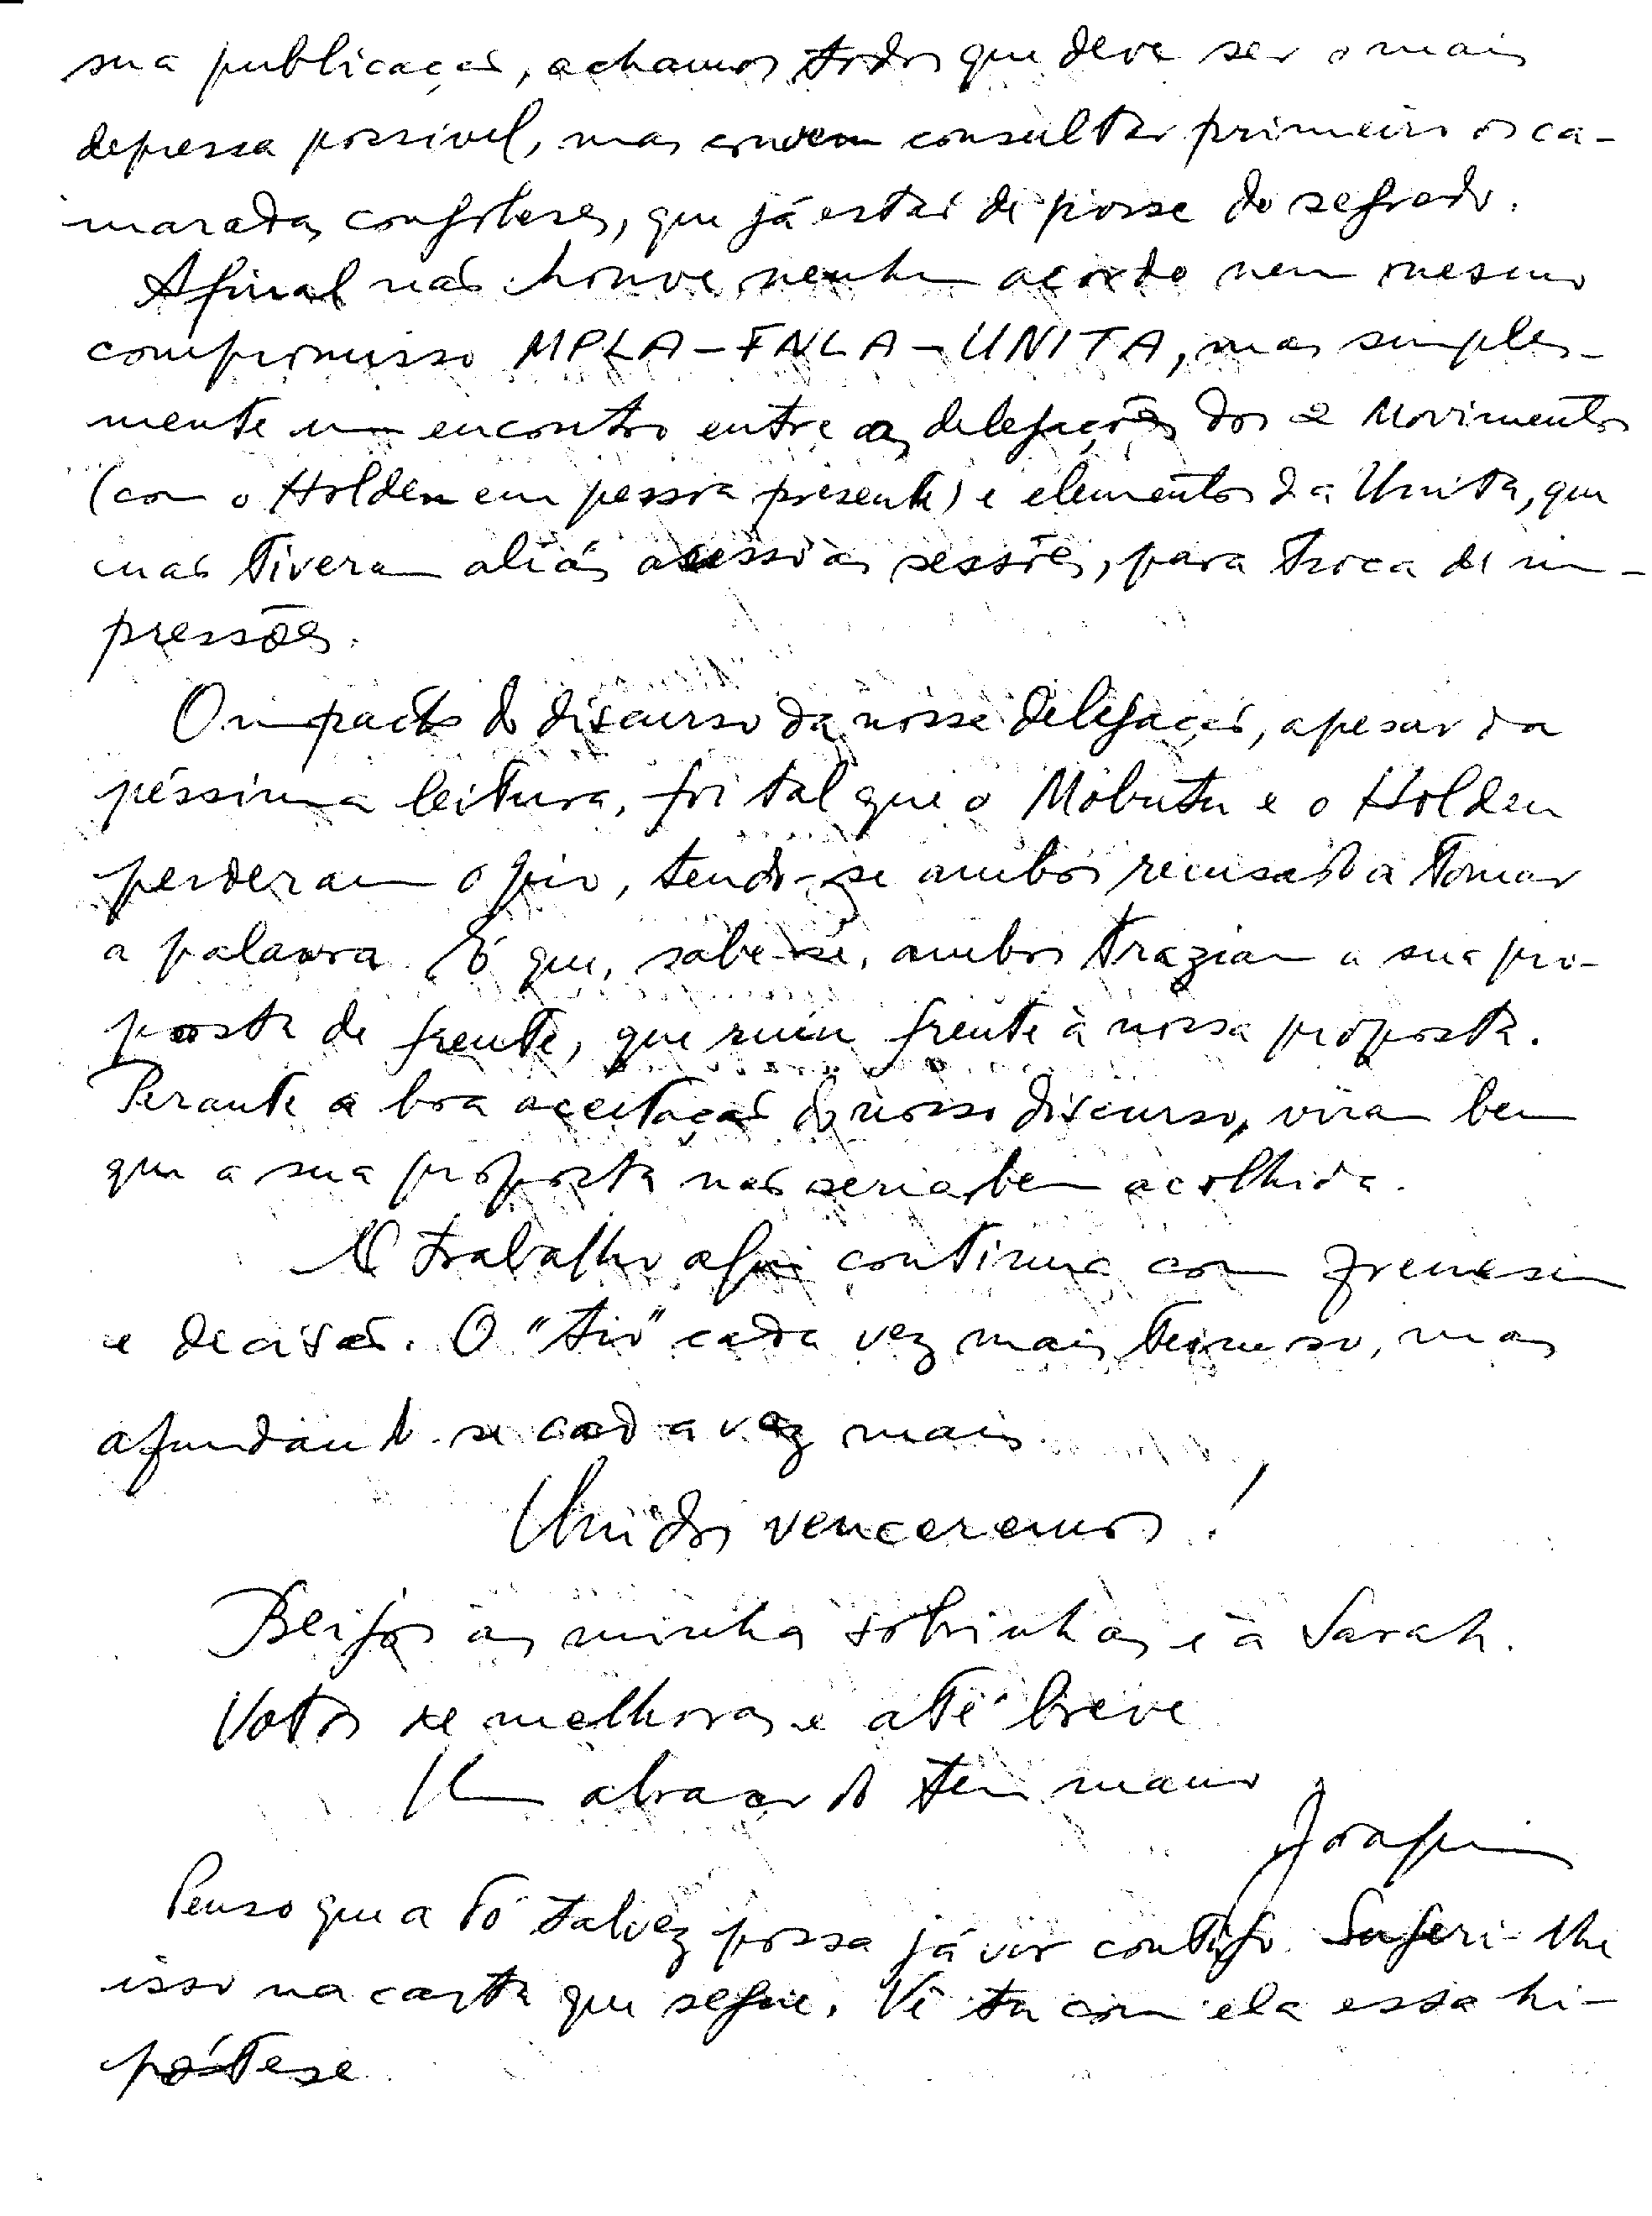 sua publicação, achamos todos que deve ser o mais
depressa possivel, mas convem consultar primeiro os ca-
maradas congoleses, que já estão de posse do segredo.
Afinal não houve nenhum acordo nem mesmo
compromisso MPLA-FNLA-UNITA, mas simples-
mente um encontro entre as delegações dos 2 Movimentos
(com o Holden em pessoa presente) e elementos da Unita, que
não tiveram aliás acesso às sessões, para troca de im-
pressões.
O impacto do discurso da nossa delegação, apesar da
péssima leitura, foi tal que o Mobutu e o Holden
perderam o pio, tendo-se ambos recusado a tomar
a palavra. É que, sabe-se, ambos traziam a sua pro-
posta de frente, que ruiu frente à nossa proposta.
Perante a boa aceitação do nosso discurso, viram bem
que a sua proposta não seria bem acolhida.
O trabalho aqui continua com frenesim
e decisão. O "tio" cada vez mais teimoso, mas
afundando-se cada vez mais.
Unidos venceremos!
Beijos às minhas sobrinhas e à Sarah.
Votos de melhoras e até breve
Um abraço do teu mano
Joaquim
Penso que a Tó talvez possa já vir contigo. Sugeri-lhe
isso na carta que segue. Vê tu com ela essa hi-
pótese